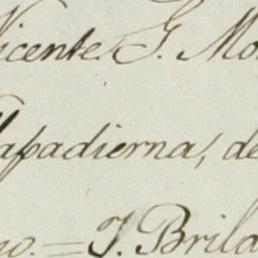 Vicente G. Mo
apadierna, de
no. = J. Brila